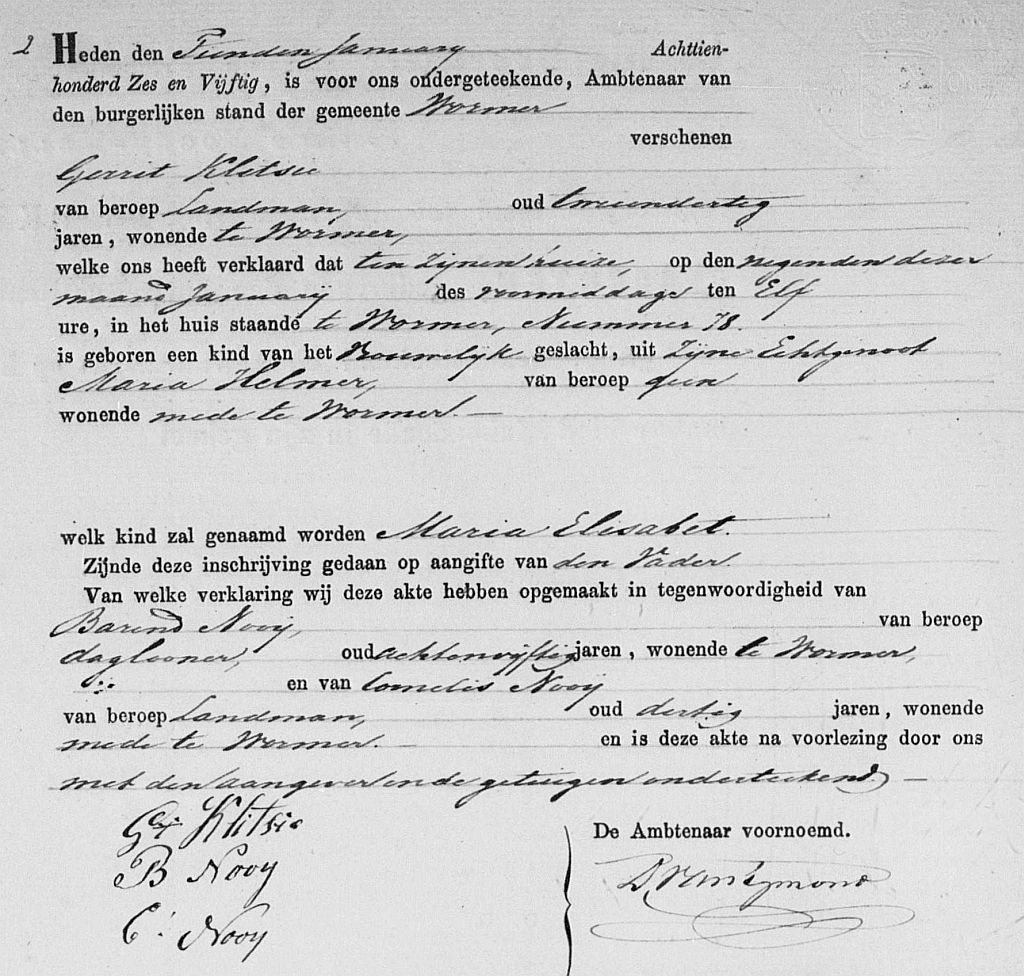 2 Heden den Tienden January Achttien-
honderd Zes en Vijftig, is voor ons ondergeteekende, Ambtenaar van
den burgerlijken stand der gemeente Wormer
verschenen
Gerrit Klitsie
van beroep Landman, oud tweeendertig
jaren, wonende te Wormer,
welke ons heeft verklaard dat ten zijnen huize, op den negenden dezer
maand Januarij des voormiddags ten Elf
ure, in het huis staande te Wormer, Nummer 78.
is geboren een kind van het Vrouwelijk geslacht, uit zijne Echtgenoot
Maria Helmer, van beroep geen
wonende mede te Wormer. —
welk kind zal genaamd worden Maria Elisabet.
Zijnde deze inschrijving gedaan op aangifte van den Vader.
Van welke verklaring wij deze akte hebben opgemaakt in tegenwoordigheid van
Barend Nooij, van beroep
daglooner, oud achtenvijftig jaren, wonende te Wormer,
en van Cornelis Nooij
van beroep Landman, oud dertig jaren, wonende
mede te Wormer. — en is deze akte na voorlezing door ons
met den aangever en de getuigen onderteekend —
Gt Klitsie
De Ambtenaar voornoemd.
B Nooy
C. Nooy